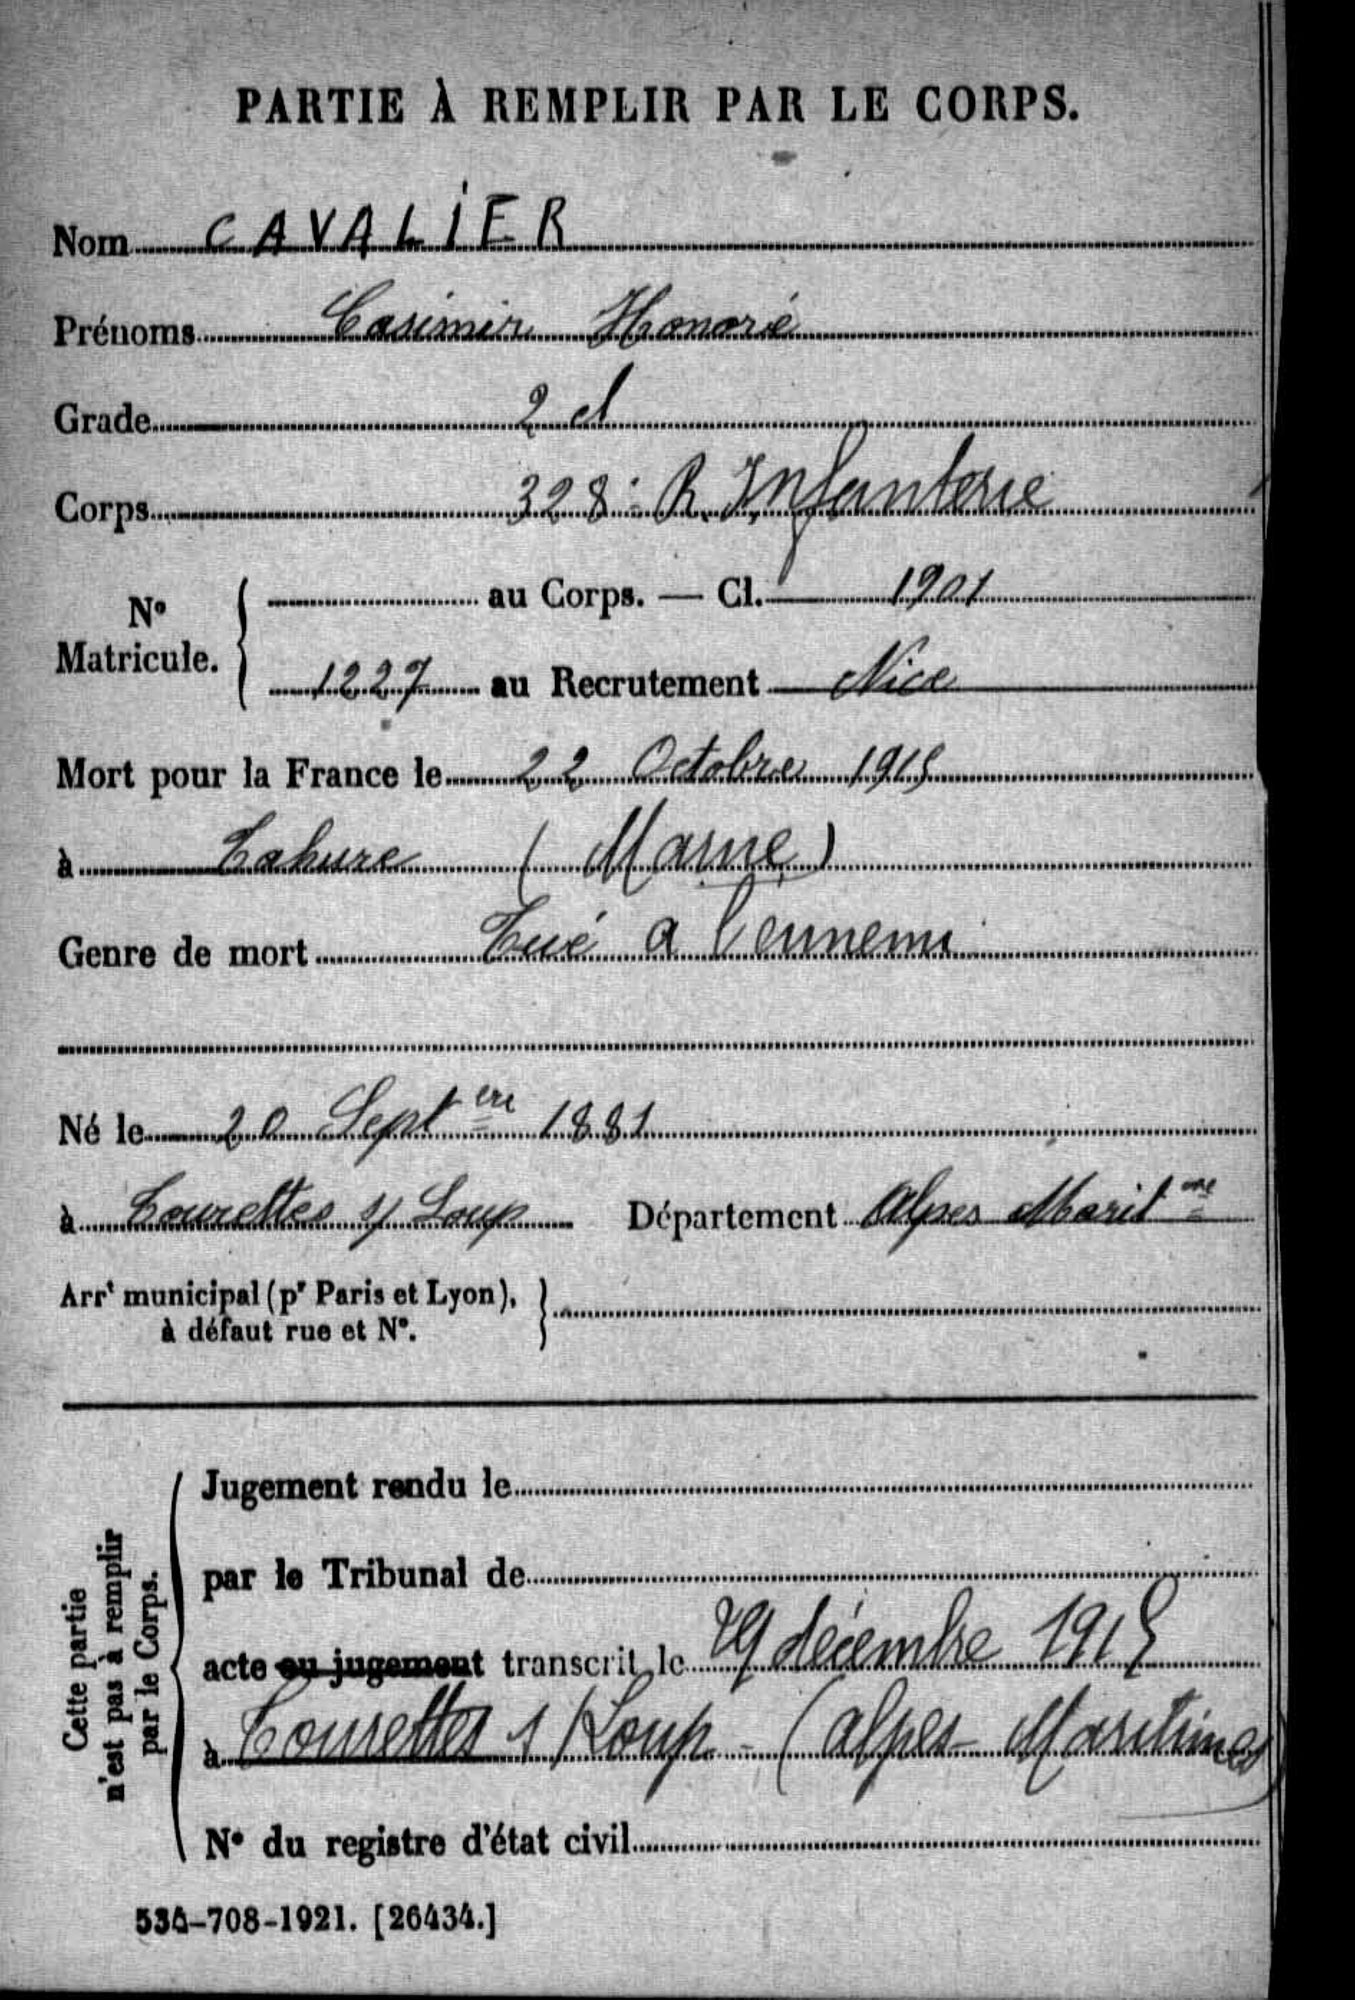 PARTIE À REMPLIR PAR LE CORPS.
Nom CAVALIER
Prénoms Casimir Honoré
Grade 2 cl
Corps 328e R. Infanterie
N° Matricule. { au Corps. — Cl. 1901
1227 au Recrutement Nice
Mort pour la France le 22 Octobre 1915
à Tahure (Marne)
Genre de mort Tué a l'ennemi
Né le 20 Septbre 1881
à Tourettes s/ Loup Département Alpes Maritmes
Arrt municipal (pr Paris et Lyon), }
à défaut rue et N°.
Cette partie
n'est pas à remplir
par le Corps.
Jugement rendu le
par le Tribunal de
acte ou jugement transcrit le 29 décembre 1915
à Tourettes s/Loup - (Alpes-Maritimes)
N° du registre d'état civil
534-708-1921. [26434.]